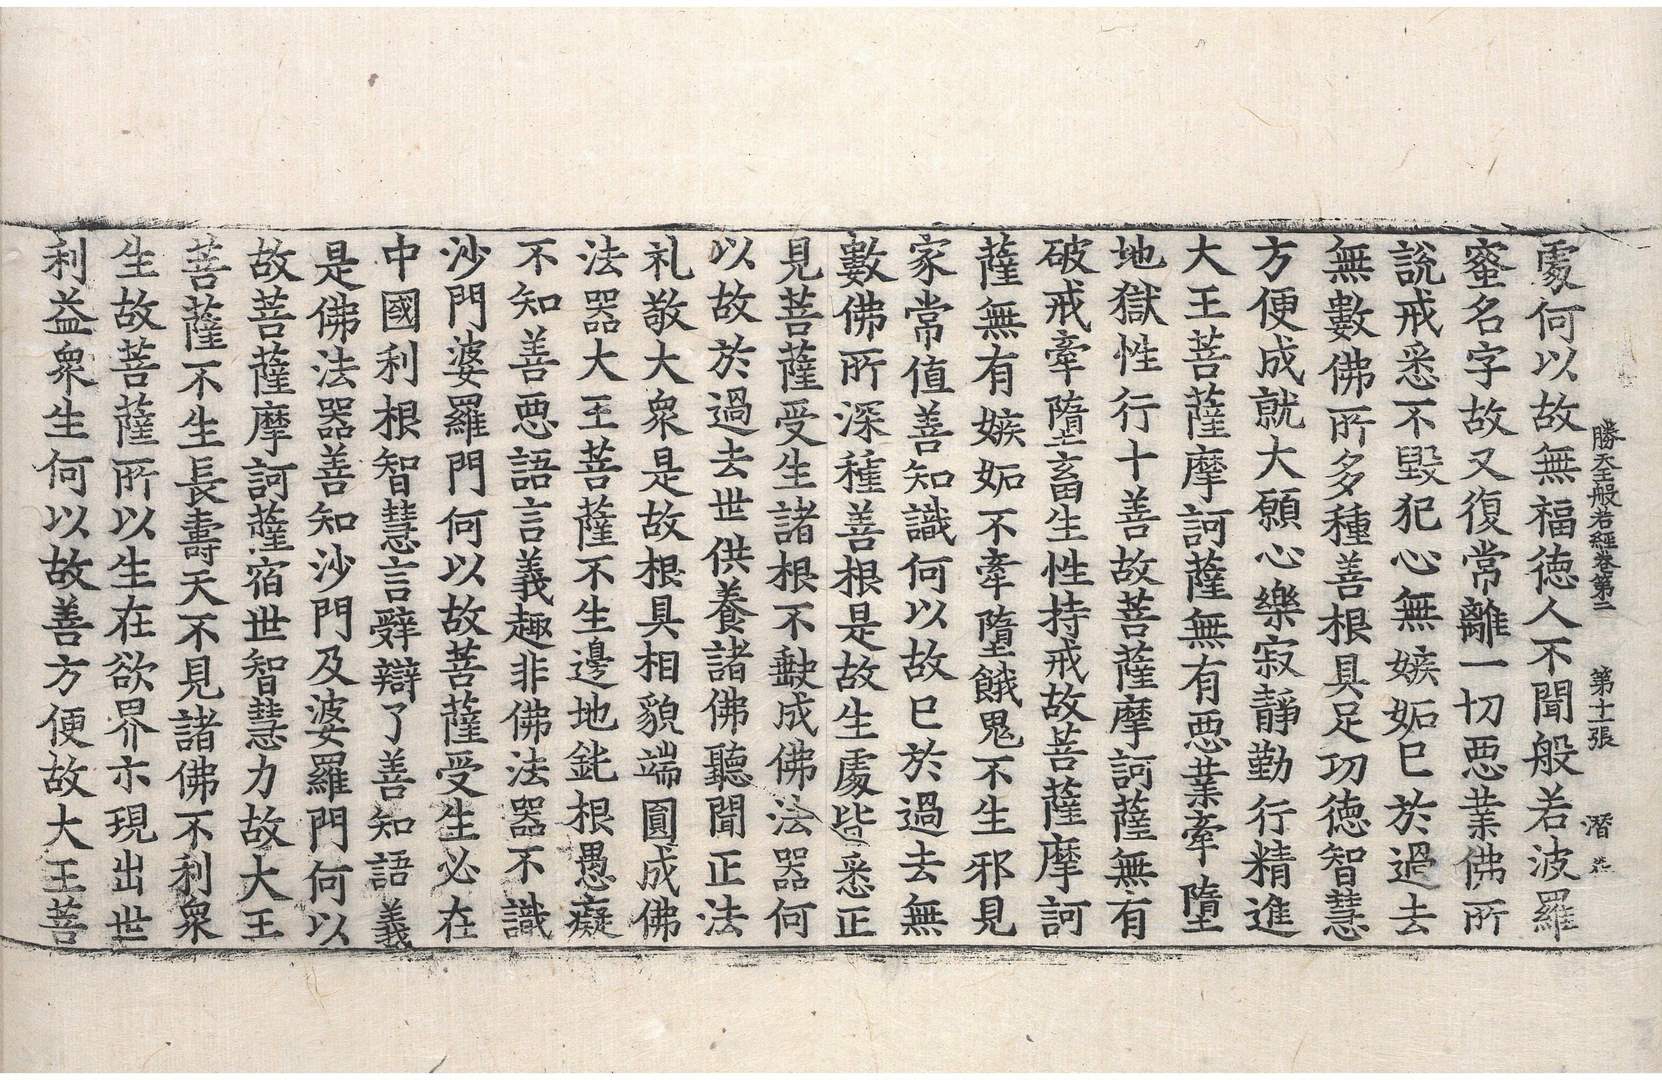 勝天王般若經卷第二　第十一張　潛
處何以故無福德人不聞般若波羅
蜜名字故又復常離一切惡業佛所
說戒悉不毀犯心無嫉妬已於過去
無數佛所多種善根具足功德智慧
方便成就大願心樂寂靜勤行精進
大王菩薩摩訶薩無有惡業牽墮
地獄性行十善故菩薩摩訶薩無有
破戒牽墮畜生性持戒故菩薩摩訶
薩無有嫉妬不牽墮餓鬼不生邪見
家常值善知識何以故已於過去無
數佛所深種善根是故生處皆悉正
見菩薩受生諸根不𡙇成佛法器何
以故於過去世供養諸佛聽聞正法
礼敬大衆是故根具相貌端圓成佛
法器大王菩薩不生邊地鈍根愚癡
不知善惡語言義趣非佛法器不識
沙門婆羅門何以故菩薩受生必在
中國利根智慧言辭辯了善知語義
是佛法器善知沙門及婆羅門何以
故菩薩摩訶薩宿世智慧力故大王
菩薩不生長壽天不見諸佛不利衆
生故菩薩所以生在欲界亦現出世
利益衆生何以故善方便故大王菩